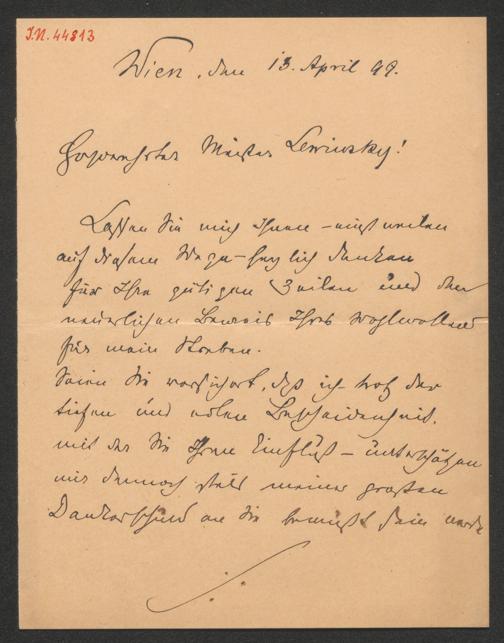 J.N. 44313
Wien, den 13. April 99.
Hochverehrter Meister Lewinsky!
Lassen Sie mich Ihnen – einstweilen
auf diesem Wege – herzlich danken
für Ihre gütigen Zeilen und den
neuerlichen Beweis Ihres Wohlwollens
für mein Streben.
Seien Sie versichert, dass ich trotz der
tiefen und edlen Bescheidenheit,
mit der Sie Ihren Einfluß – unterschätzen
mir dennoch stets meiner großen
Dankesschuld an Sie bewußt sein werde